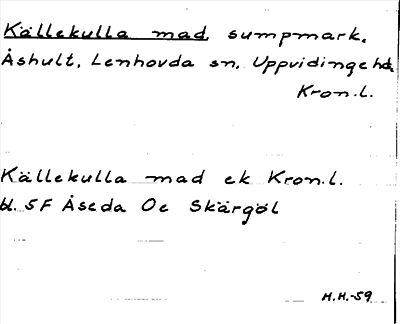 Källekulla mad, sumpmark.
Åshult, Lenhovda sn, Uppvidinge hd.
Kron.l.
Källekulla mad ek Kron.l.
bl. 5F Åseda Oe Skärgöl
H.H.-59